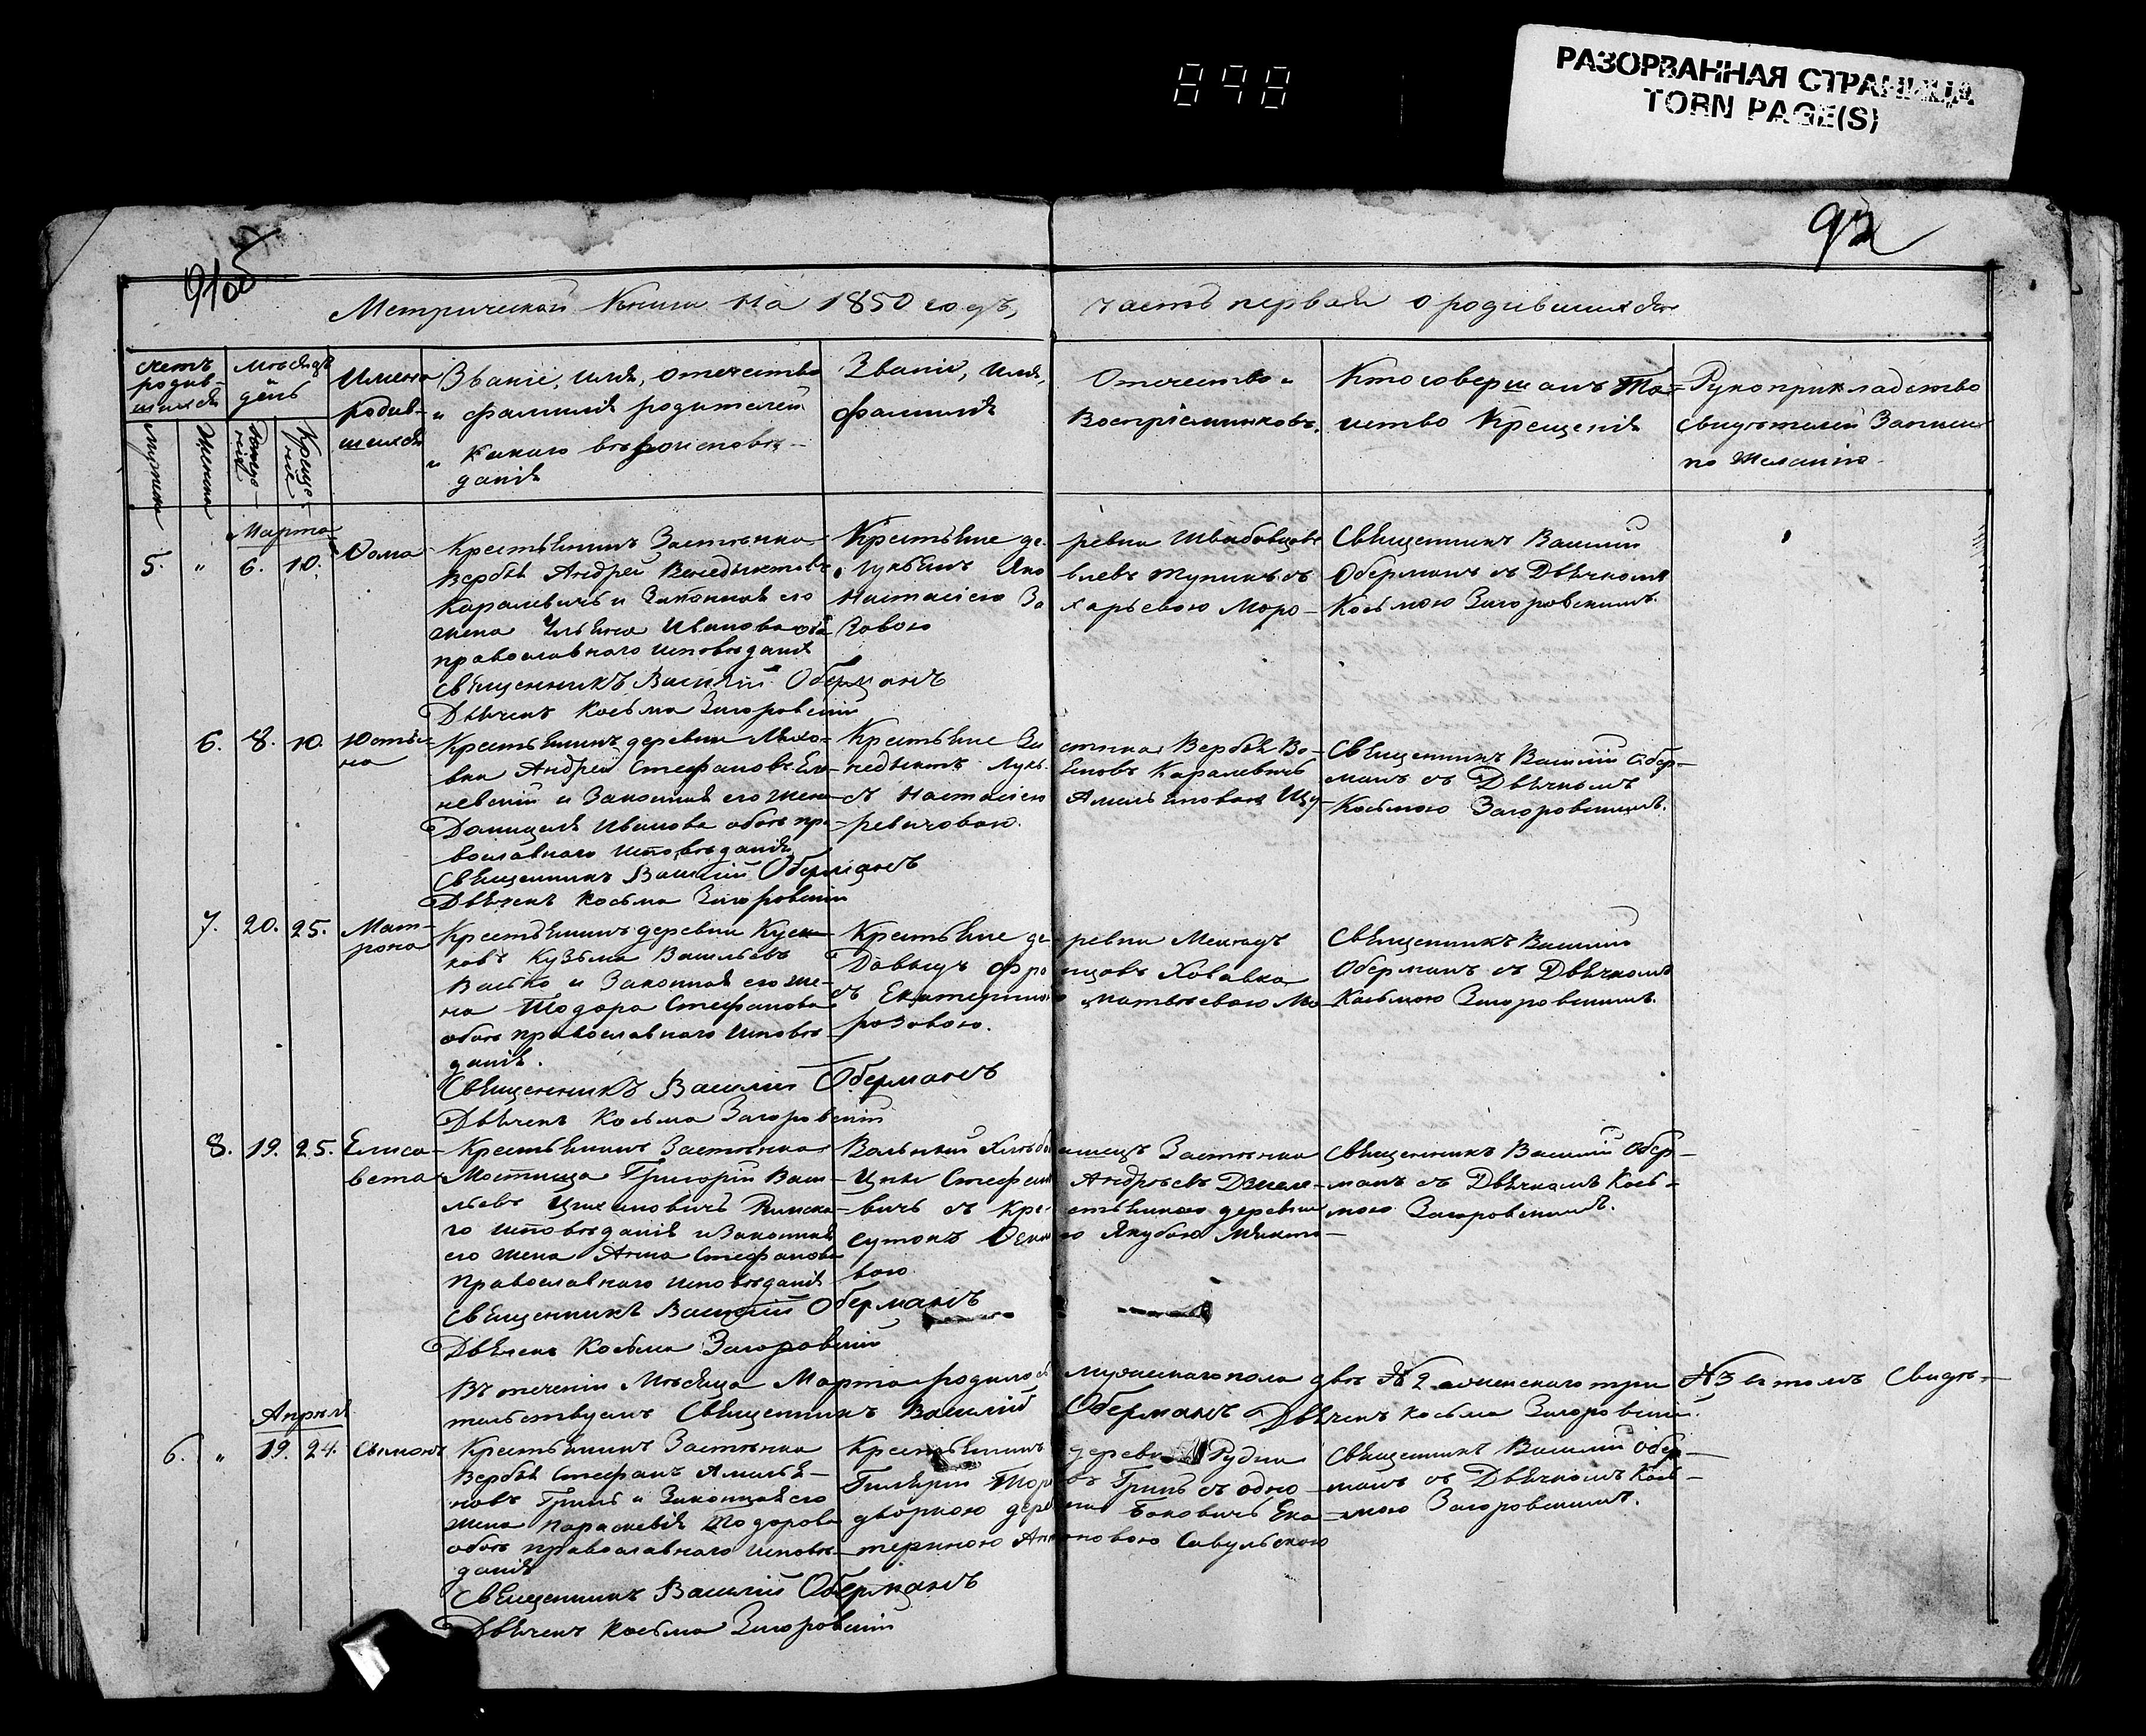 898
РАЗОРВАННАЯ СТРАНИЦА
TORN PAGE(S)
91об
92
Метрической Книги на 1850 годъ, часть первая о родившихся
Счетъ родив-шихся
Мѣсяцъ и день
Имена родив-шихся
Званіе, имя, отечество и фамилія родителей и какого вѣроисповѣ-данія
Званіе, имя, фамилія
Отечество и Воспріемниковъ.
Кто совершалъ Та-инство Крещенія
Рукоприкладство свидѣтелей Записи по желанію.
Мужеска
Женска
Рожде-нія
Креще-нія
Марта
5. " 6. 10. Фома
Крестьянинъ Застѣнка
Вербы Андрей Венедыктовъ
Каралевичъ и Законная его
жена Ульяна Иванова оба
православнаго исповѣданія
Священникъ Василій Оберманъ
Дьячекъ Косьма Загоровскій
Крестьяне де-ревни
Лукьянъ Яко-влевъ
Настасіею За-харьевою Моро-
зовою
Священникъ Василій
Оберманъ съ Дьячкомъ
Косьмою Загоровскимъ.
6. 8. 10. Юсты-на
Крестьянинъ деревни
Андрей Стефановъ
и Законная его жена
Домицеля Иванова обое пра-
вославнаго исповѣданія
Священникъ Василій Оберманъ
Дьячекъ Косьма Загоровскій
Крестьяне За-стѣнка Вербы Ве-
недыктъ Лукь-яновъ Каралевичъ
съ Настасіею Амельяновою
Священникъ Василій Обер-
манъ съ Дьячкомъ
Косьмою Загоровскимъ.
7. 20. 25. Мат-рона
Крестьянинъ деревни
Кузьма Васильевъ
Васько и Законная его же-
на Тодора Стефанова
обое православнаго исповѣ-
данія.
Священникъ Василій Оберманъ
Дьячекъ Косьма Загоровскій
Крестьяне де-ревни
Давыдъ
съ Екатериною Матвѣевою Мо-
розовою.
Священникъ Василій
Оберманъ съ Дьячкомъ
Косьмою Загоровскимъ.
8. 19. 25. Елиса-вета
Крестьянинъ Застѣнка
Мостища Григорій Васи-
льевъ Римска-
го исповѣданія и Законная
его жена Анна Стефанова
православнаго исповѣданія
Священникъ Василій Оберманъ
Дьячекъ Косьма Загоровскій
Вольный Хлѣбопашецъ Застѣнка
Стефанъ Андреевъ
съ Кре-стьянкою деревни
Священникъ Василій Обер-
манъ съ Дьячкомъ Кось-
мою Загоровскимъ.
Въ теченіи Мѣсяца Марта родилось мужескаго пола два №2 а женскаго три №3 въ томъ Свидѣ-
тельствуемъ Священникъ Василій Оберманъ Дьячекъ Косьма Загоровскій.
Апрѣля
6. " 19. 24. Сымонъ
Крестьянинъ Застѣнка
Вербы Стефанъ Амелья-
новъ Гринь и Законная его
жена Параскевія Тодорова
обое православнаго исповѣ-
данія
Священникъ Василій Оберманъ
Дьячекъ Косьма Загоровскій
Крестьянинъ деревни Рудни
Гринь съ одно-
дворкою деревни Ека-
териною Антоновою Савульскою
Священникъ Василій Обер-
манъ съ Дьячкомъ Кось-
мою Загоровскимъ.